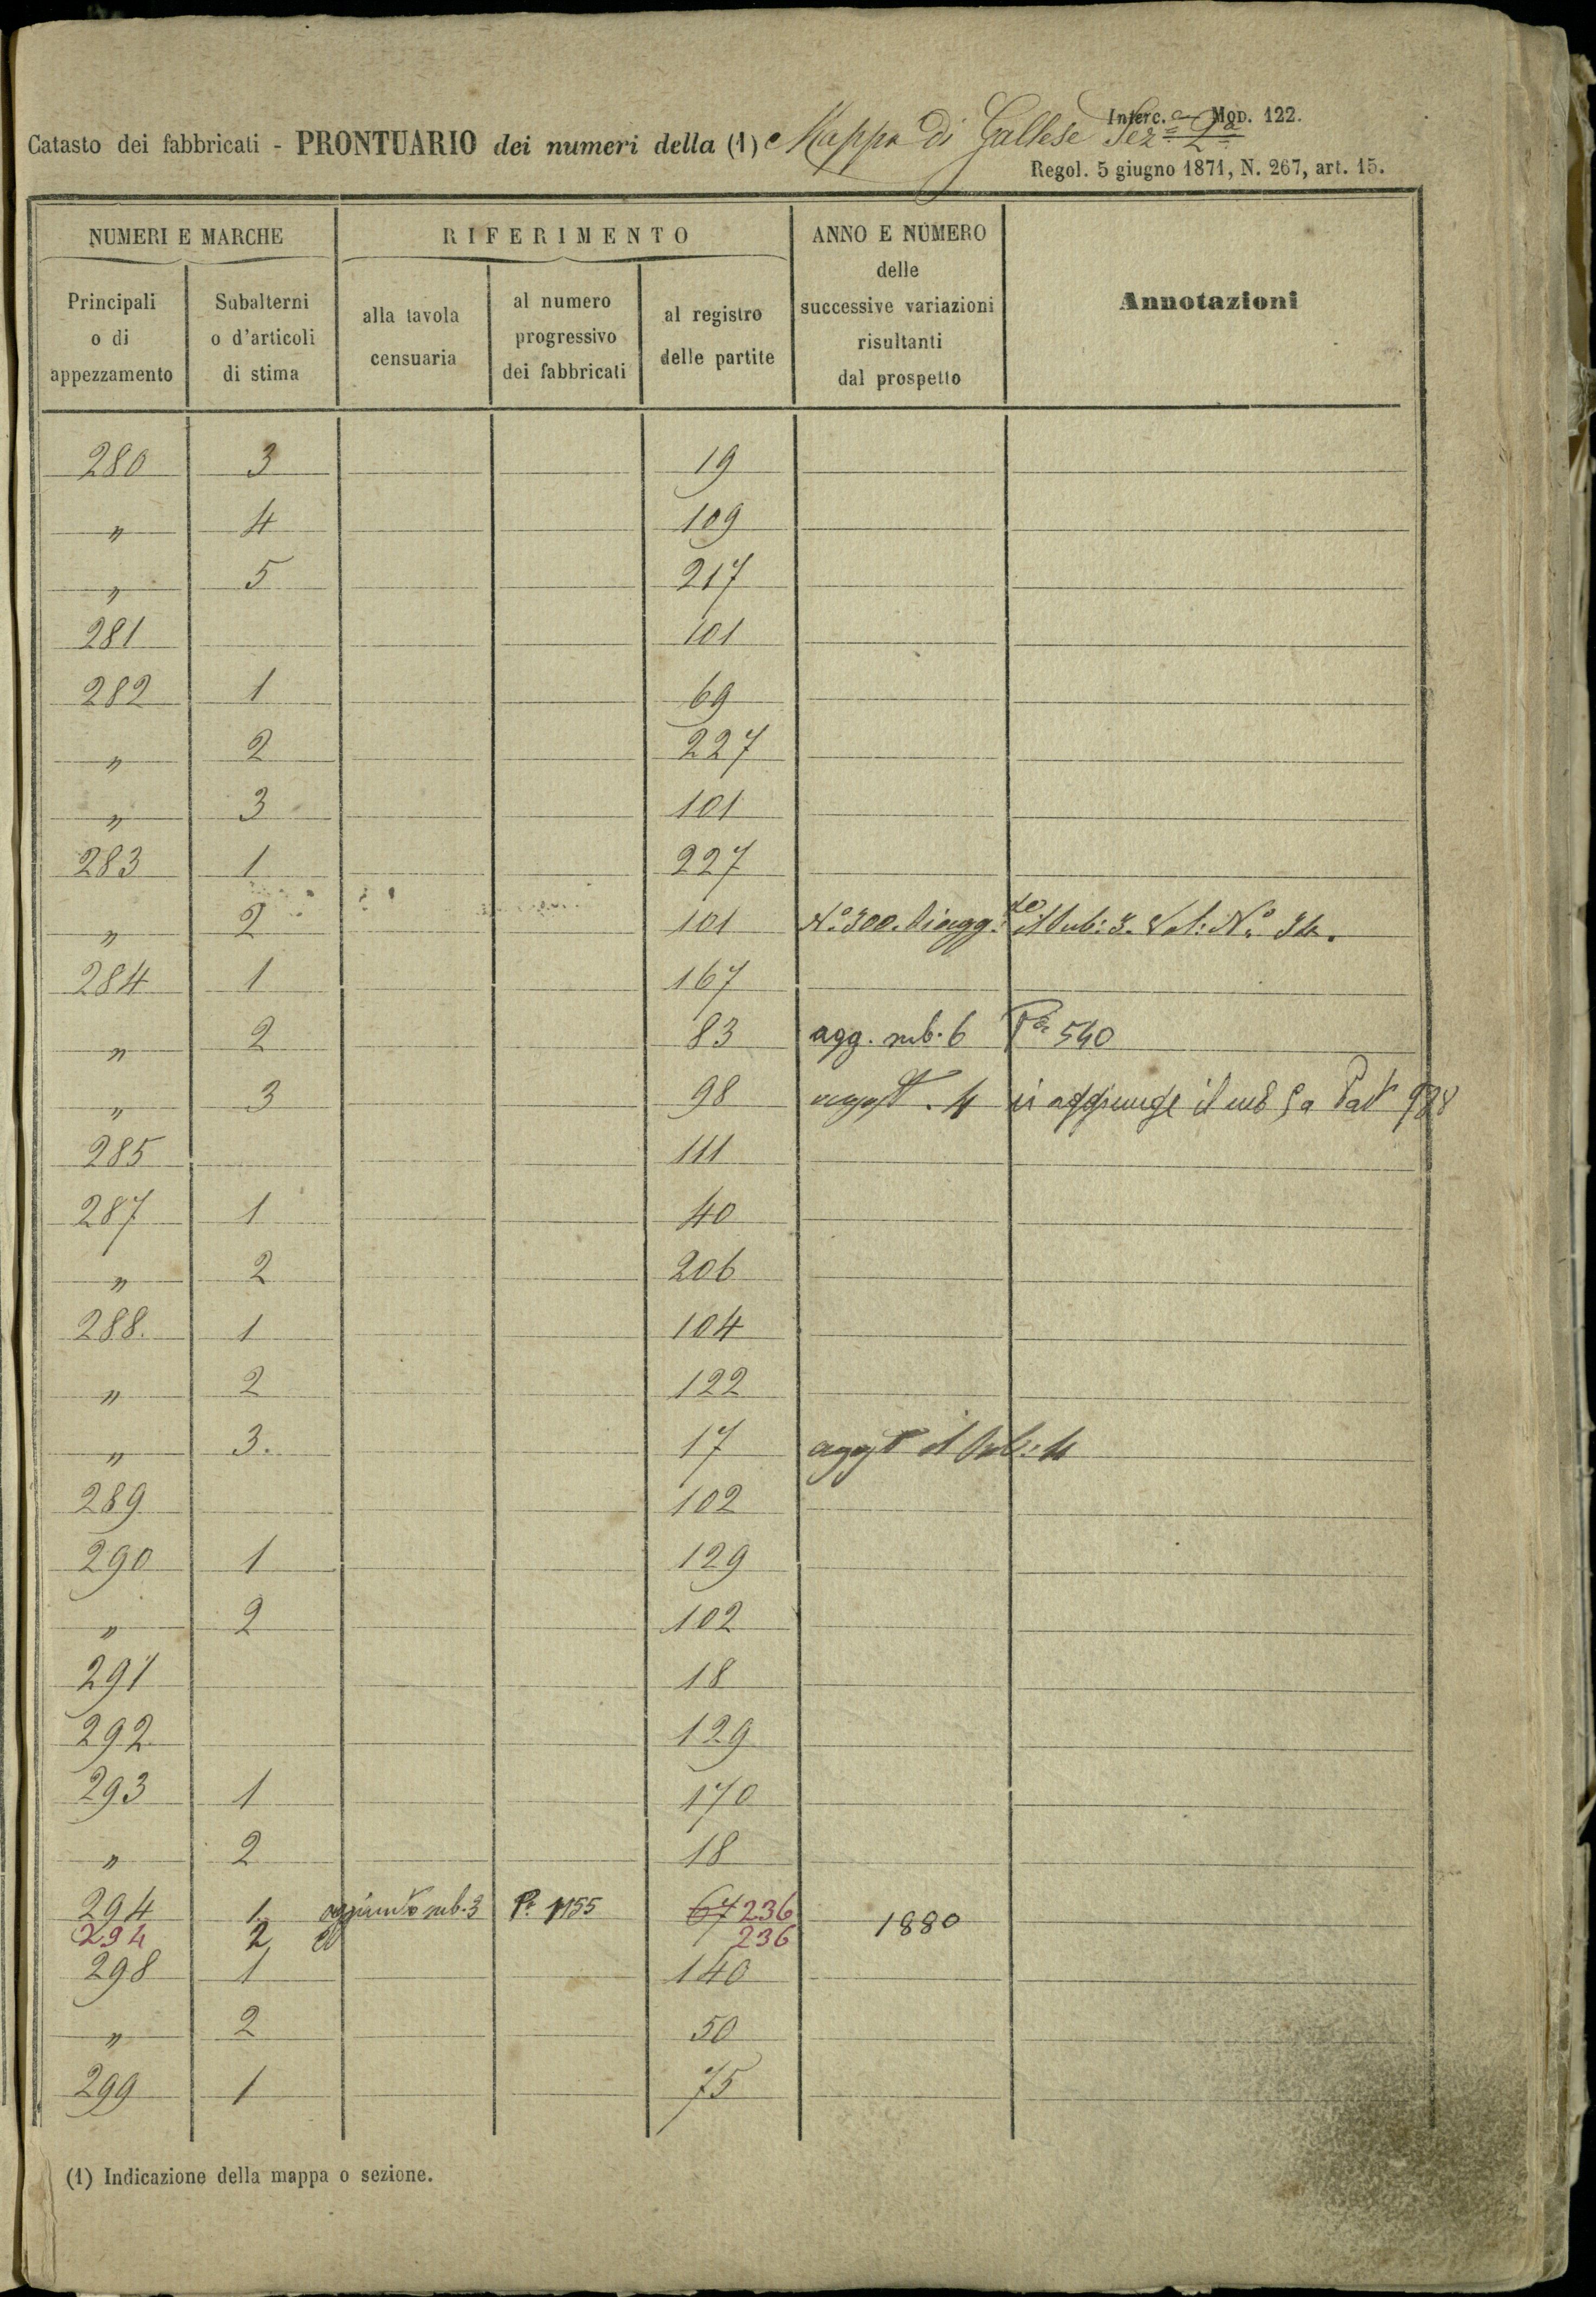 Interc. Mod. 122.
Catasto dei fabbricati - PRONTUARIO dei numeri della (1) Mappa di Gallese Sez.e 2a
Regol. 5 giugno 1871, N. 267, art. 15.
NUMERI E MARCHE
RIFERIMENTO
ANNO E NUMERO
delle
successive variazioni
risultanti
dal prospetto
Annotazioni
Principali
o di
appezzamento
Subalterni
o d'articoli
di stima
alla tavola
censuaria
al numero
progressivo
dei fabbricati
al registro
delle partite
280 3 19
" 4 109
" 5 217
281 101
282 1 69
" 2 227
" 3 101
283 1 227
" 2 101 N.o 300. si agg.to il Sub: 3. Vol: N.o 34.
284 1 167
" 2 83 agg. sub. 6 Pa 540
" 3 98 aggt. 4 si aggiunge il sub 5 a Part
285 111
287 1 40
" 2 206
288. 1 104
" 2 122
" 3. 17 aggt il Sub: 4
289 102
290 1 129
" 2 102
291 18
292 129
293 1 170
" 2 18
294 1 aggiunto sub. 3 P. 1155 67 236
294 2 236 1880
298 1 140
" 2 50
299 1 75
(1) Indicazione della mappa o sezione.